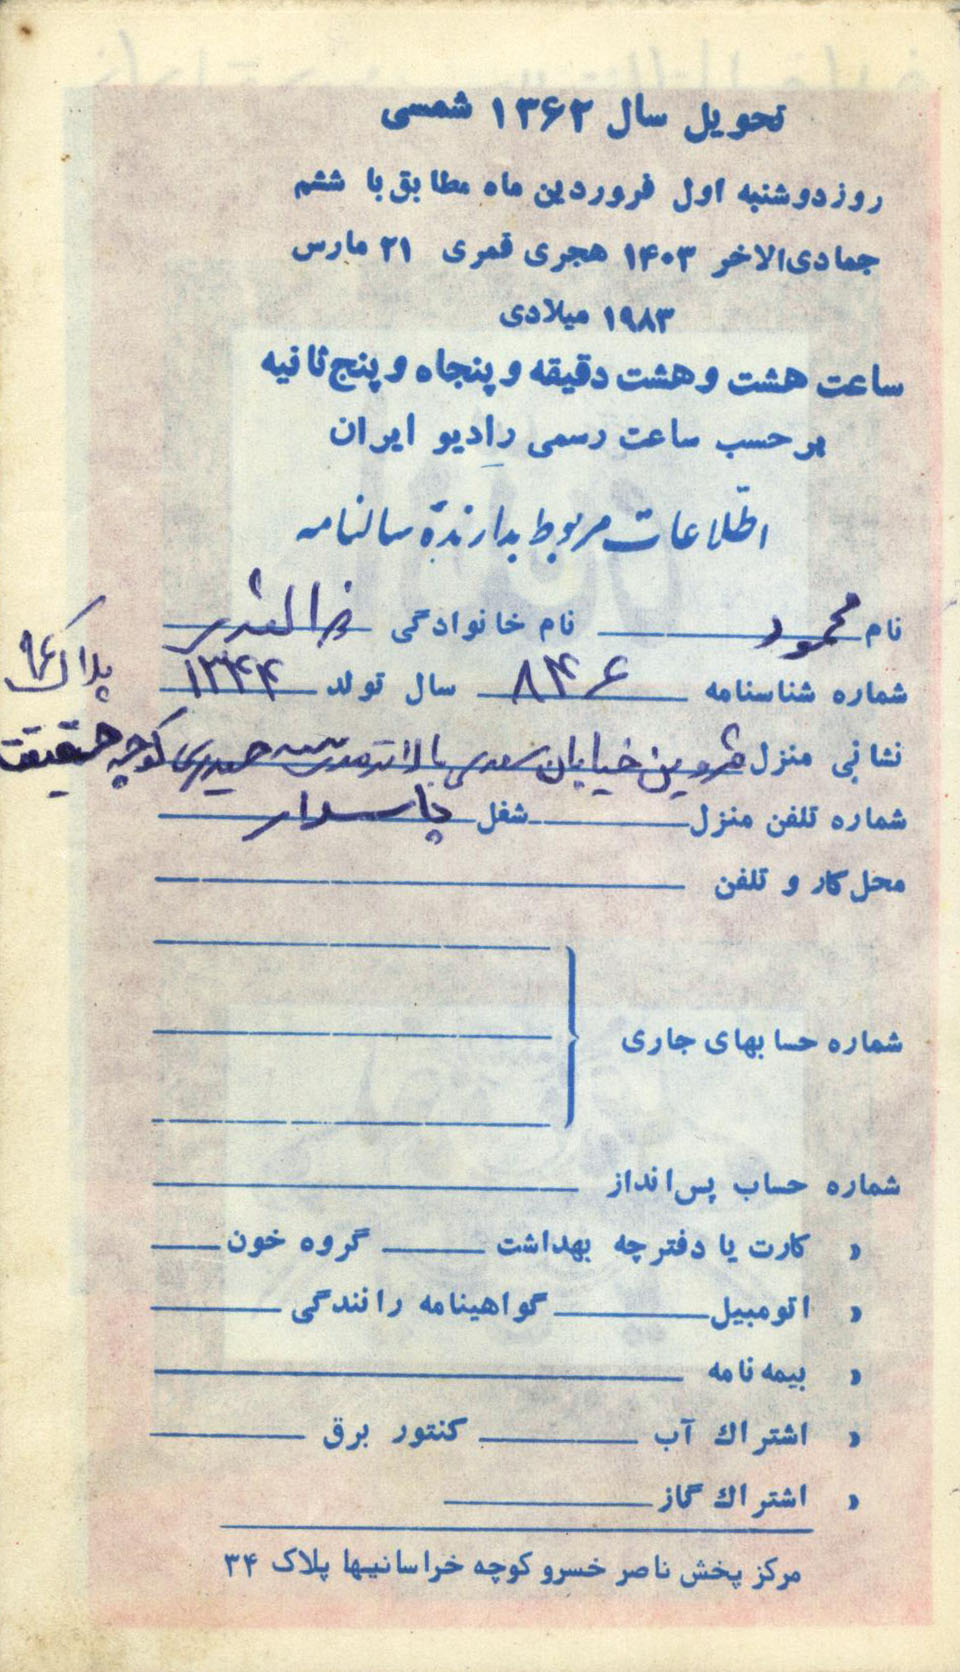 تحویل سال ۱۳۶۲ شمسی
روز دوشنبه اول فروردین ماه مطابق با ششم
جمادی‌الاخر ۱۴۰۳ هجری قمری ۲۱ مارس
۱۹۸۳ میلادی
ساعت هشت و هشت دقیقه و پنجاه و پنج ثانیه
بر حسب ساعت رسمی رادیو ایران
اطلاعات مربوط بدارندهٔ سالنامه
نام محمود نام خانوادگی
شماره شناسنامه ۸۴۶ سال تولد ۱۳۴۴ پلاک ۹۶
نشانی منزل قزوین خیابان سعدی بالاتر مدرسه حیدری کوچه حقیقت
شماره تلفن منزل شغل پاسدار
محل کار و تلفن
شماره حسابهای جاری
شماره حساب پس‌انداز
« کارت یا دفترچه بهداشت گروه خون
« اتومبیل گواهینامه رانندگی
« بیمه نامه
« اشتراك آب کنتور برق
« اشتراك گاز
مرکز پخش ناصر خسرو کوچه خراسانیها پلاک ۳۴